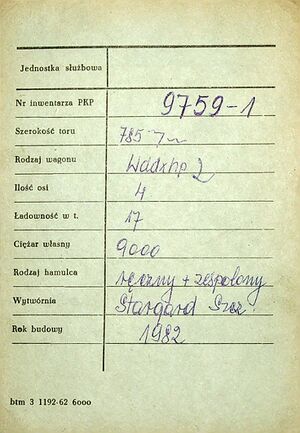 Jednostka służbowa
Nr inwentarza PKP 9759-1
Szerokość toru 785
Rodzaj wagonu Wddxhp 2
Ilość osi 4
Ładowność w t. 17
Ciężar własny 9000
Rodzaj hamulca ręczny + zespolony
Wytwórnia Stargard Szcz.
Rok budowy 1982
btm 3 1192-62 6000